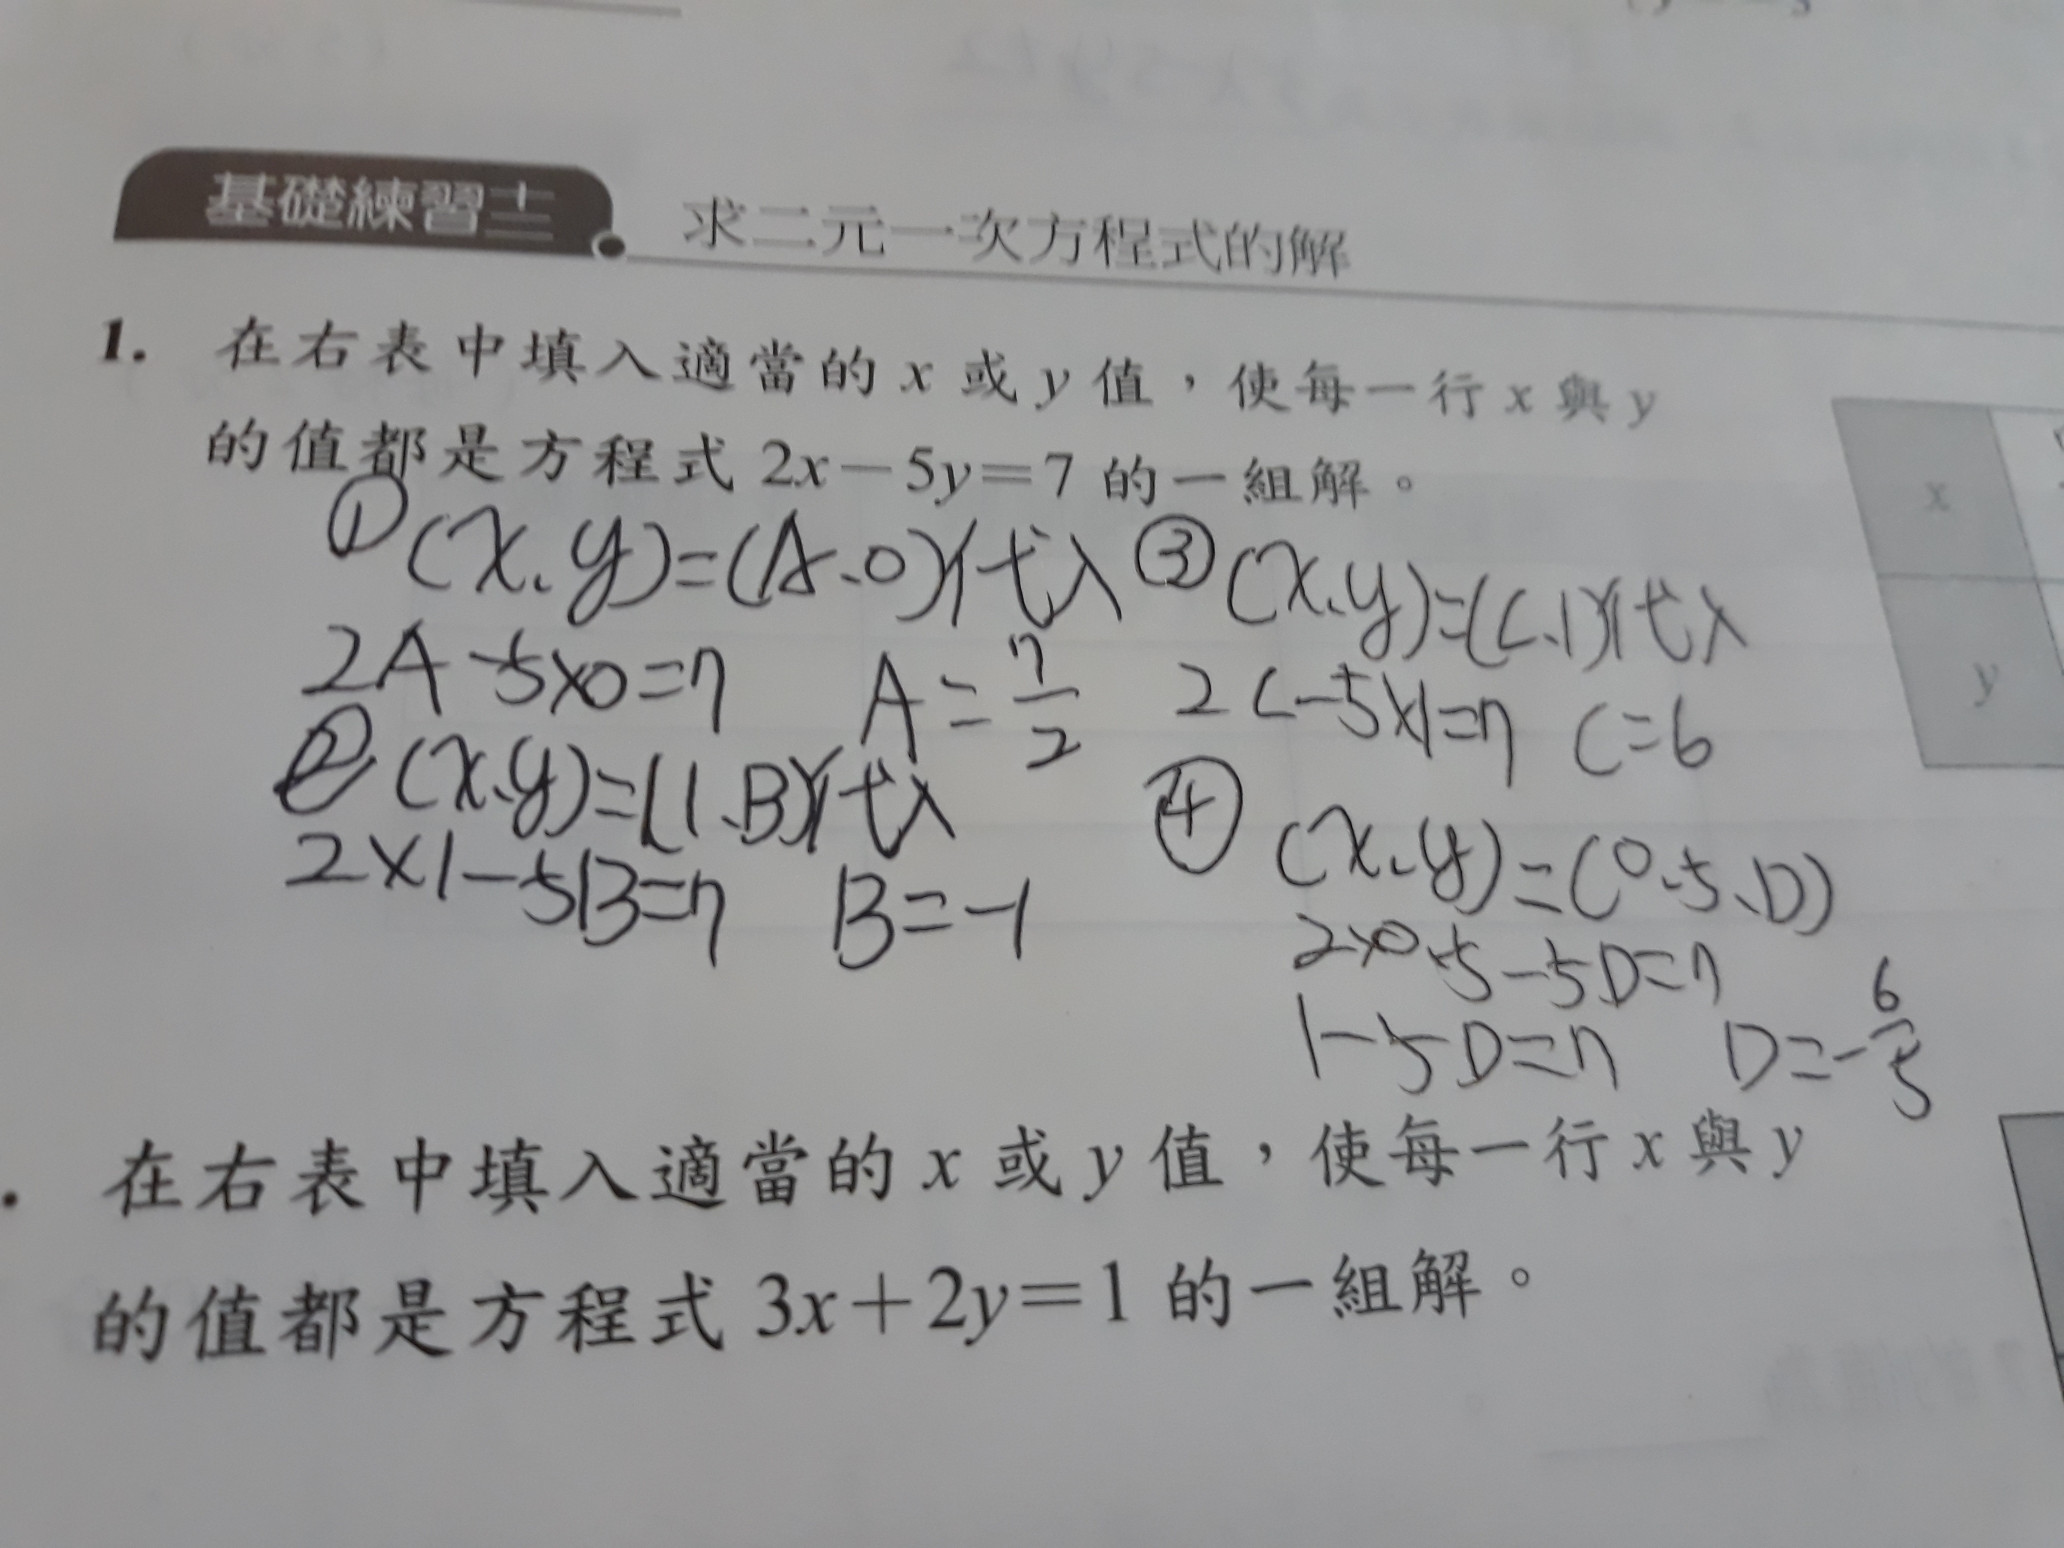 基礎練習十二 求二元一次方程式的解
1. 在右表中填入適當的 x 或 y 值，使每一行 x 與 y
的值都是方程式 2x－5y＝7 的一組解。
x
y
① (x、y)=(A、0)代入
2A-5×0=7 A=7/2
② (x、y)=(1、B)代入
2×1-5B=7 B=-1
③ (x、y)=(C、1)代入
2C-5×1=7 C=6
④ (x、y)=(0.5、D)
2×0.5-5D=7
1-5D=7 D=-6/5
. 在右表中填入適當的 x 或 y 值，使每一行 x 與 y
的值都是方程式 3x＋2y＝1 的一組解。